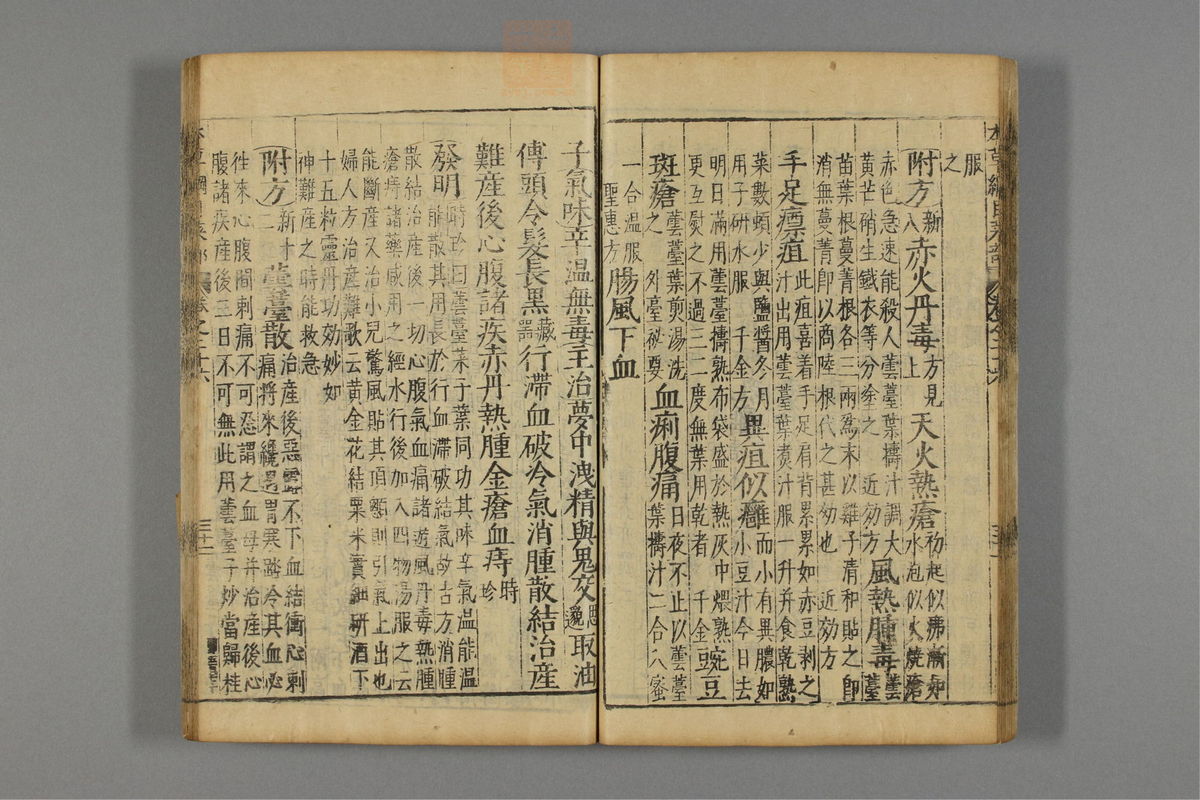 服
之
附方新八 赤火丹毒 方見上 天火熱瘡 初起似痱漸如水泡似火燒瘡
赤色急速能殺人蕓薹葉擣汁調大
黃芒硝生鐵衣等分塗之 近効方 風熱腫毒 蕓薹
苗葉根蔓菁根各三兩爲末以雞子清和貼之即
消無蔓菁即以商陸根代之甚効也 近効方
手足瘭疽 此疽喜着手足肩背累累如赤豆剥之汁出用蕓薹葉煑汁服一升并食乾熟
菜數頓少與鹽醬冬月
用子研水服 千金方 異疽似癰 而小有異膿如小豆汁今日去
明日滿用蕓薹擣熟布袋盛於熱灰中煨熟
更互熨之不過三二度無葉用乾者 千金 豌豆
斑瘡 蕓薹葉煎湯洗之 外臺秘要 血痢腹痛 日夜不止以蕓薹葉擣汁二合入蜜
一合温服
聖惠方 腸風下血
子氣味辛温無毒主治夢中洩精與鬼交 思邈 取油
傅頭令髮長黑 藏器 行滯血破冷氣消腫散結治產
難產後心腹諸疾赤丹熱腫金瘡血痔 時珍
發明 時珍曰蕓薹菜子葉同功其味辛氣温能温能散其用長於行血滯破結氣故古方消腫
散結治產後一切心腹氣血痛諸遊風丹毒熱腫
瘡痔諸藥咸用之經水行後加入四物湯服之云
能斷產又治小兒驚風貼其頂顖則引氣上出也
婦人方治產難歌云黄金花結粟米實細研酒下
十五粒靈丹功効妙如
神難產之時能救急
附方 新十二 蕓薹散 治產後惡露不下血結衝心刺痛將來纔遇冒寒踏冷其血必
徃來心腹間刺痛不可忍謂之血母并治產後心
腹諸疾產後三日不可無此用蕓薹子炒當歸桂